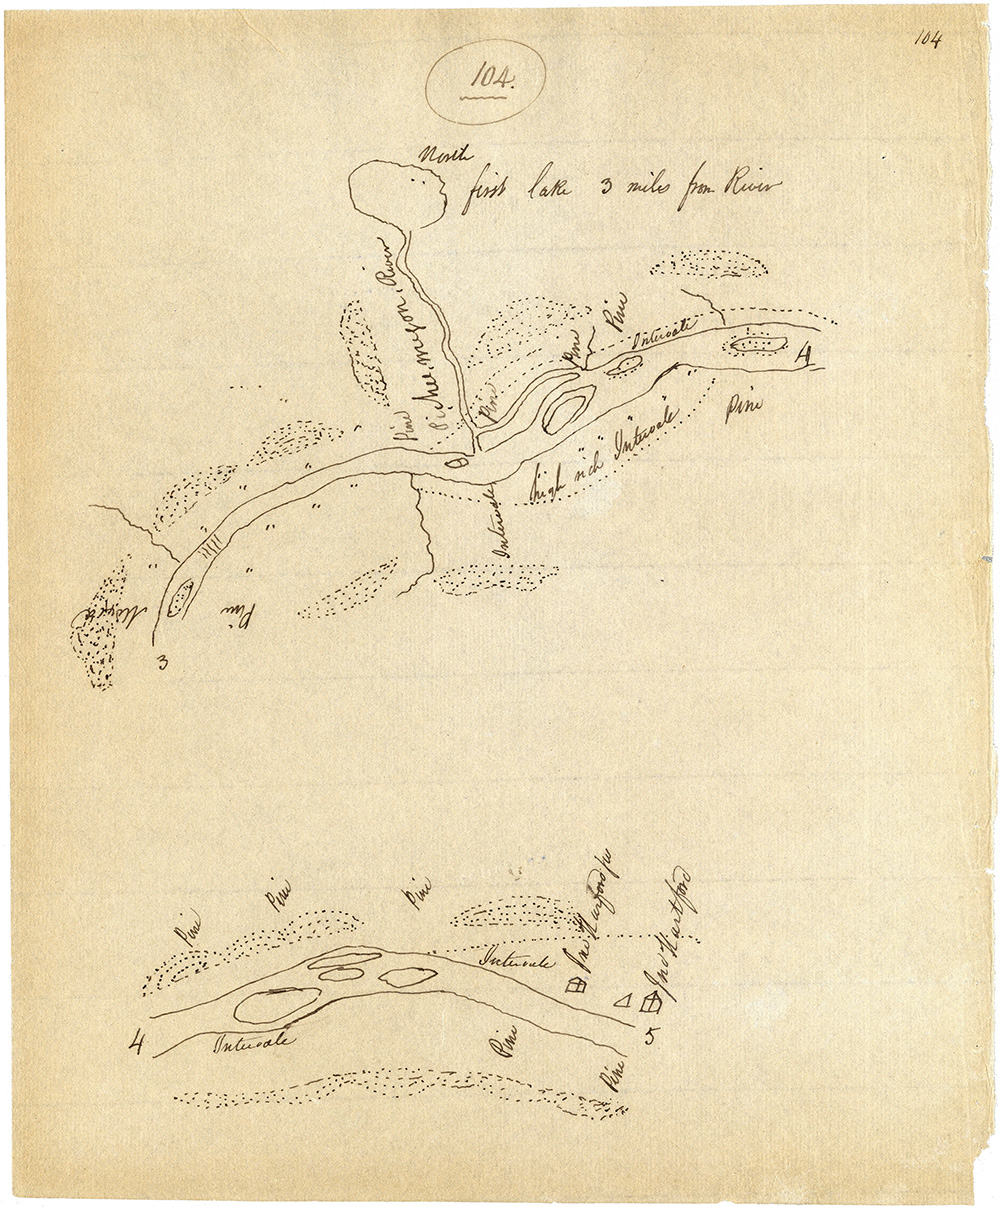 104
104.
North
first lake 3 miles from River
River
Pine
Pine
Pine
Pine
Intervale
4
Pine
"high rich Intervale"
Intervale
Pine
3
Pine
Pine
Pine
Intervale
Jno Hartford
4
Intervale
Pine
5
Pine